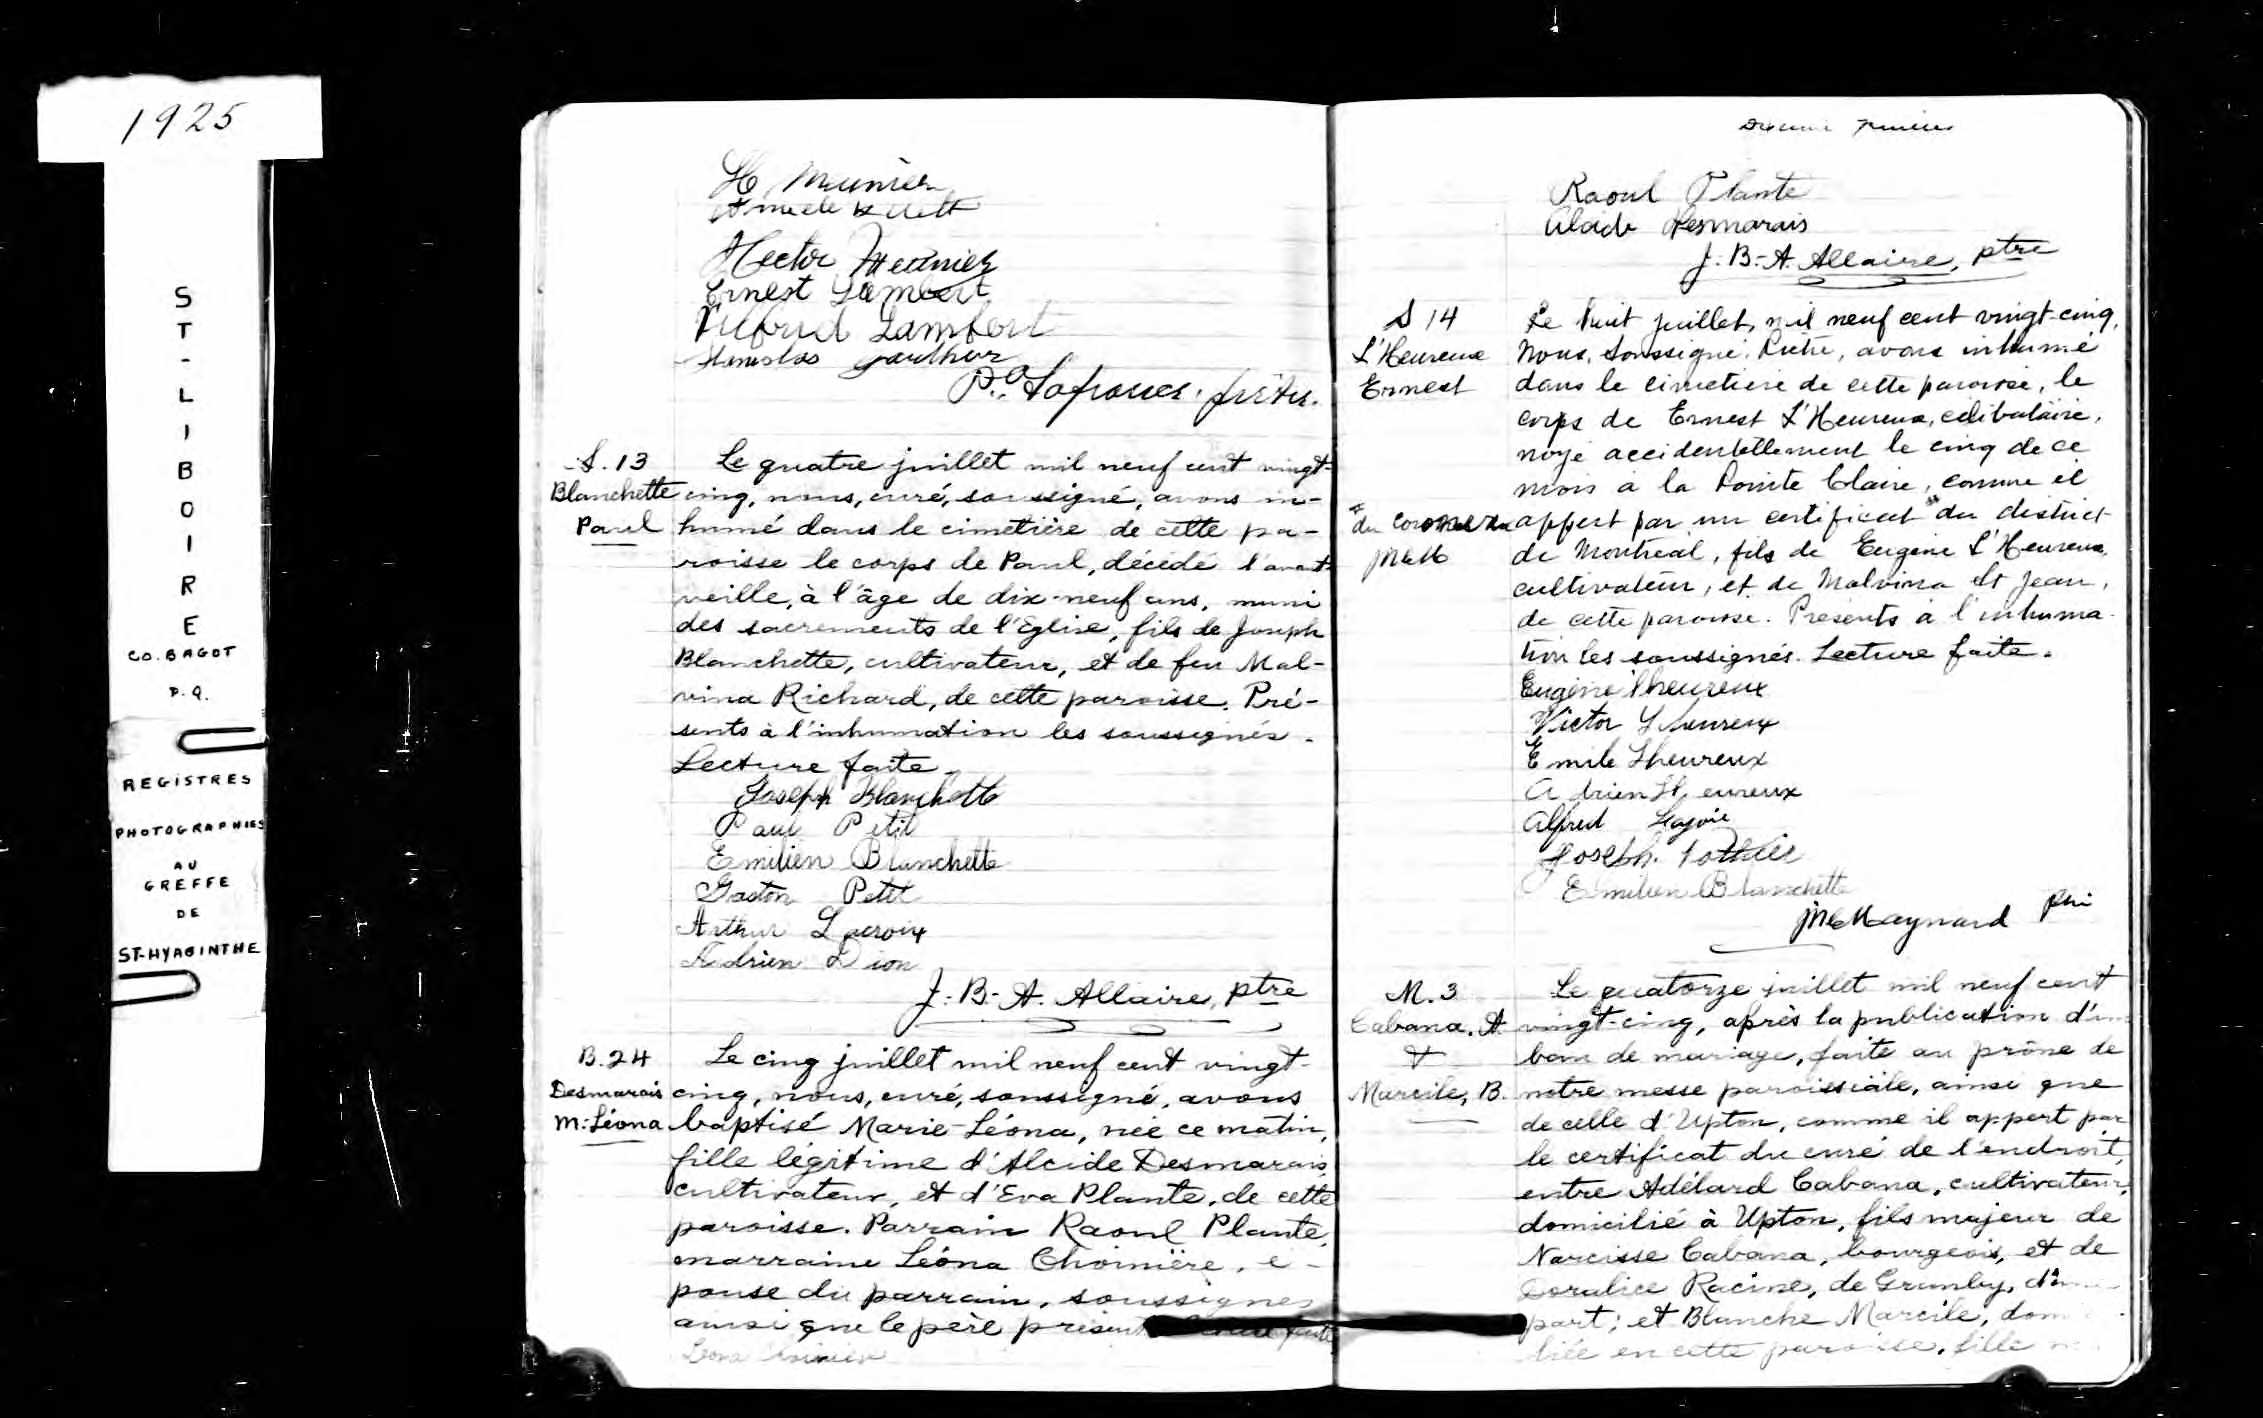 1925
ST-LIBOIRE
CO. BAGOT
P.Q.
REGISTRES
PHOTOGRAPHIES
AU
GREFFE
DE
ST-HYACINTHE
H. Meunier
Hector Meunier
Ernest Lambert
Wilfrid Lambert
Stanislas Gauthier
S. 13
Blanchette
Paul
Le quatre juillet mil neuf cent vingt-
cinq, nous, curé, soussigné, avons in-
humé dans le cimetière de cette pa-
roisse le corps de Paul, décédé l'avant
veille, à l'âge de dix-neuf ans, muni
des sacrements de l'Eglise, fils de Joseph
Blanchette, cultivateur, et de feu Mal-
vina Richard, de cette paroisse. Pré-
sents à l'inhumation les soussignés.
Lecture faite.
Joseph Blanchette
Paul Petit
Emilien Blanchette
Gaston Petit
Arthur Lacroix
Adrien Dion
J.-B.-A. Allaire, ptre
B. 24
Desmarais
M.-Léona
Le cinq juillet mil neuf cent vingt-
cinq, nous, curé, soussigné, avons
baptisé Marie-Léona, née ce matin,
fille légitime d'Alcide Desmarais,
cultivateur, et d'Eva Plante, de cette
paroisse. Parrain Raoul Plante,
marraine Léona Choinière, é-
pouse du parrain, soussignés
ainsi que le père présent. Lecture faite
Léona Choinière
Raoul Plante
Alcide Desmarais
J.-B.-A. Allaire, ptre
S 14
L'Heureux
Ernest
Le huit juillet, mil neuf cent vingt-cinq,
Nous, soussigné, Prêtre, avons inhumé
dans le cimetière de cette paroisse, le
corps de Ernest L'Heureux, célibataire,
noyé accidentellement le cinq de ce
mois à la Pointe Claire, comme il
appert par un certificat du district
de Montréal, fils de Eugène L'Heureux,
cultivateur, et de Malvina St Jean,
de cette paroisse. Présents à l'inhuma-
tion les soussignés. Lecture faite.
du coroner
Eugène Lheureux
Victor Lheureux
Emile Lheureux
Adrien Lheureux
Alfred Lajoie
Joseph Pothier
Emilien Blanchette
Maynard
M. 3
Cabana, A.
&
Marcile, B.
Le quatorze juillet mil neuf cent
vingt-cinq, après la publication d'un
ban de mariage, faite au prône de
notre messe paroissiale, ainsi que
de celle d'Upton, comme il appert par
le certificat du curé de l'endroit,
entre Adélard Cabana, cultivateur,
domicilié à Upton, fils majeur de
Narcisse Cabana, bourgeois, et de
Doralice Racine, de Granby, d'une
part; et Blanche Marcile, domi-
liée en cette paroisse, fille